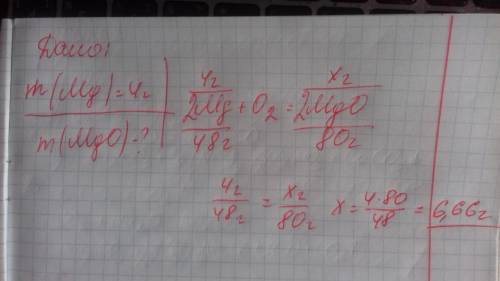 Дано:
m(Mg)=4г
m(MgO)-?
4г xг
2Mg + O₂ = 2MgO
48г 80г
4г/48г = xг/80г x = 4·80/48 = 6,66г